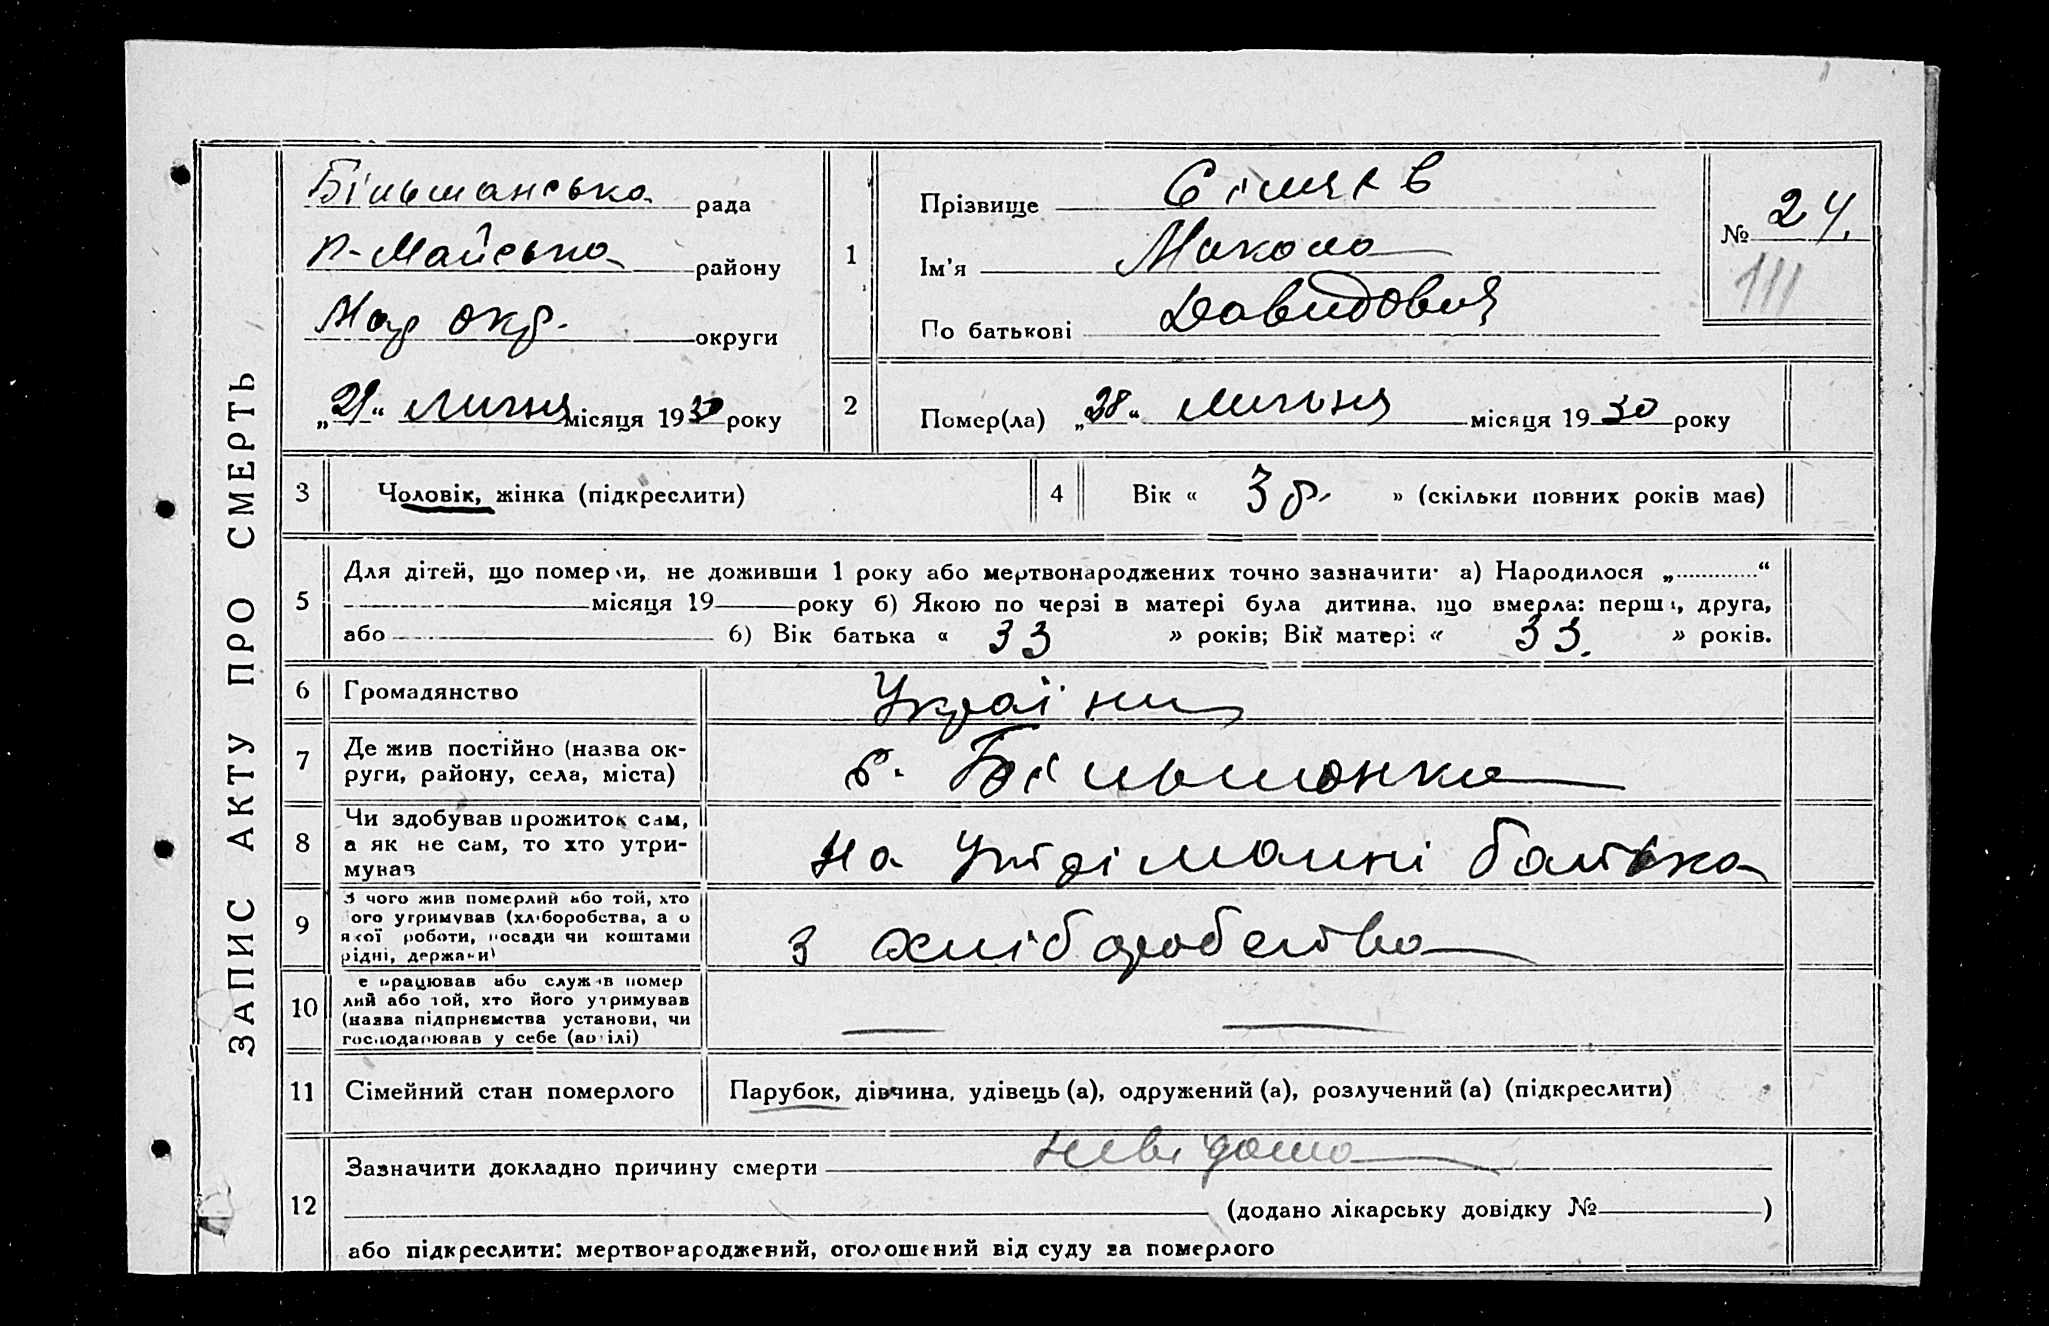 ЗАПИС АКТУ ПРО СМЕРТЬ
Більшанська рада
П-Майська району
округи
„29“ липня місяця 1930 року
1
Прізвище
Ім'я Микола
По батькові Давидович
№ 24.
111
2
Помер(ла) „28“ липня місяця 1930 року
3
Чоловік, жінка (підкреслити)
4
Вік « 3 р. » (скільки повних років має)
5
Для дітей, що померли, не доживши 1 року або мертвонароджених точно зазначити: а) Народилося „ “
місяця 19 року б) Якою по черзі в матері була дитина, що вмерла: перша, друга,
або б) Вік батька « 33 » років; Вік матері « 33. » років.
6
Громадянство
України
7
Де жив постійно (назва ок-
руги, району, села, міста)
с. Більшанка
8
Чи здобував прожиток сам,
а як не сам, то хто утри-
мував
на утріманні батька
9
З чого жив померлий або той, хто
його утримував (хліборобства, а о
якої роботи, посади чи коштами
рідні, держави)
з хліборобства
10
е працював або служив помер
лий або той, хто його утримував
(назва підприємства установи, чи
господарював у себе (артілі)
11
Сімейний стан померлого
Парубок, дівчина, удівець (а), одружений (а), розлучений (а) (підкреслити)
12
Зазначити докладно причину смерти невідома
(додано лікарську довідку № )
або підкреслити: мертвонароджений, оголошений від суду за померлого